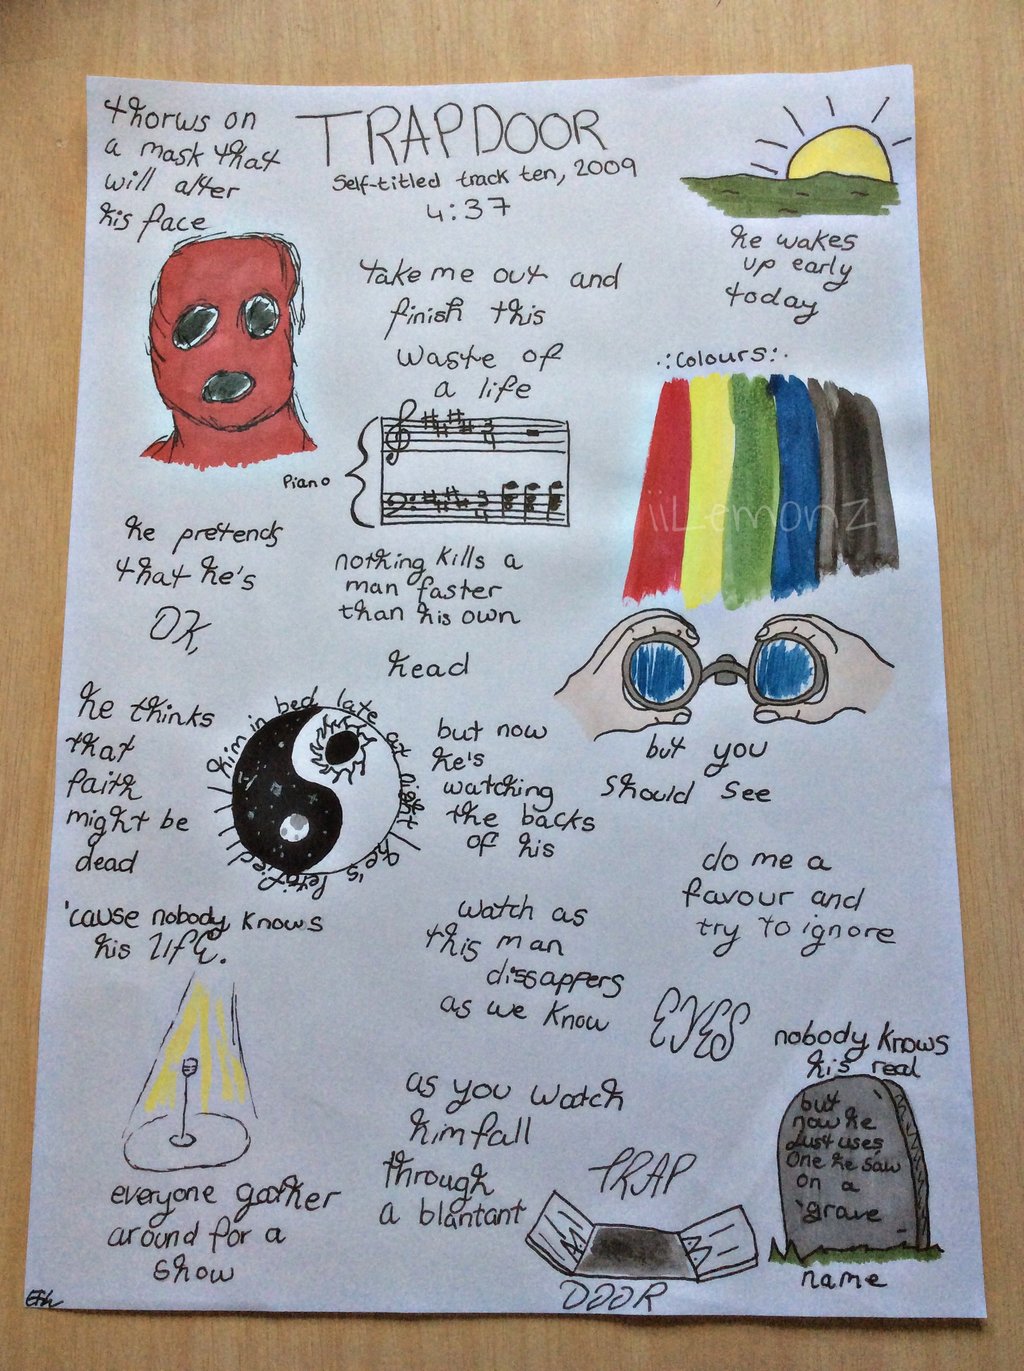 TRAPDOOR
Self-titled track ten, 2009
4:37
thorws on
a mask that
will alter
his face
he wakes
up early
today
take me out and
finish this
waste of
a life
Piano
3
4
3
4
.:Colours:.
iiLemonz
he pretends
that he's
OK,
nothing kills a
man faster
than his own
head
he thinks
that
faith
might be
dead
him in bed late at night / he's petrified /
but now
he's
watching
the backs
of his
but you
should see
do me a
favour and
try to ignore
'cause nobody knows
his LIFE.
watch as
this man
dissappers
as we know
EYES
nobody knows
his real
but
now he
Just uses
One he saw
on a
grave
name
as you watch
him fall
through
a blantant
TRAP
DOOR
everyone gather
around for a
show